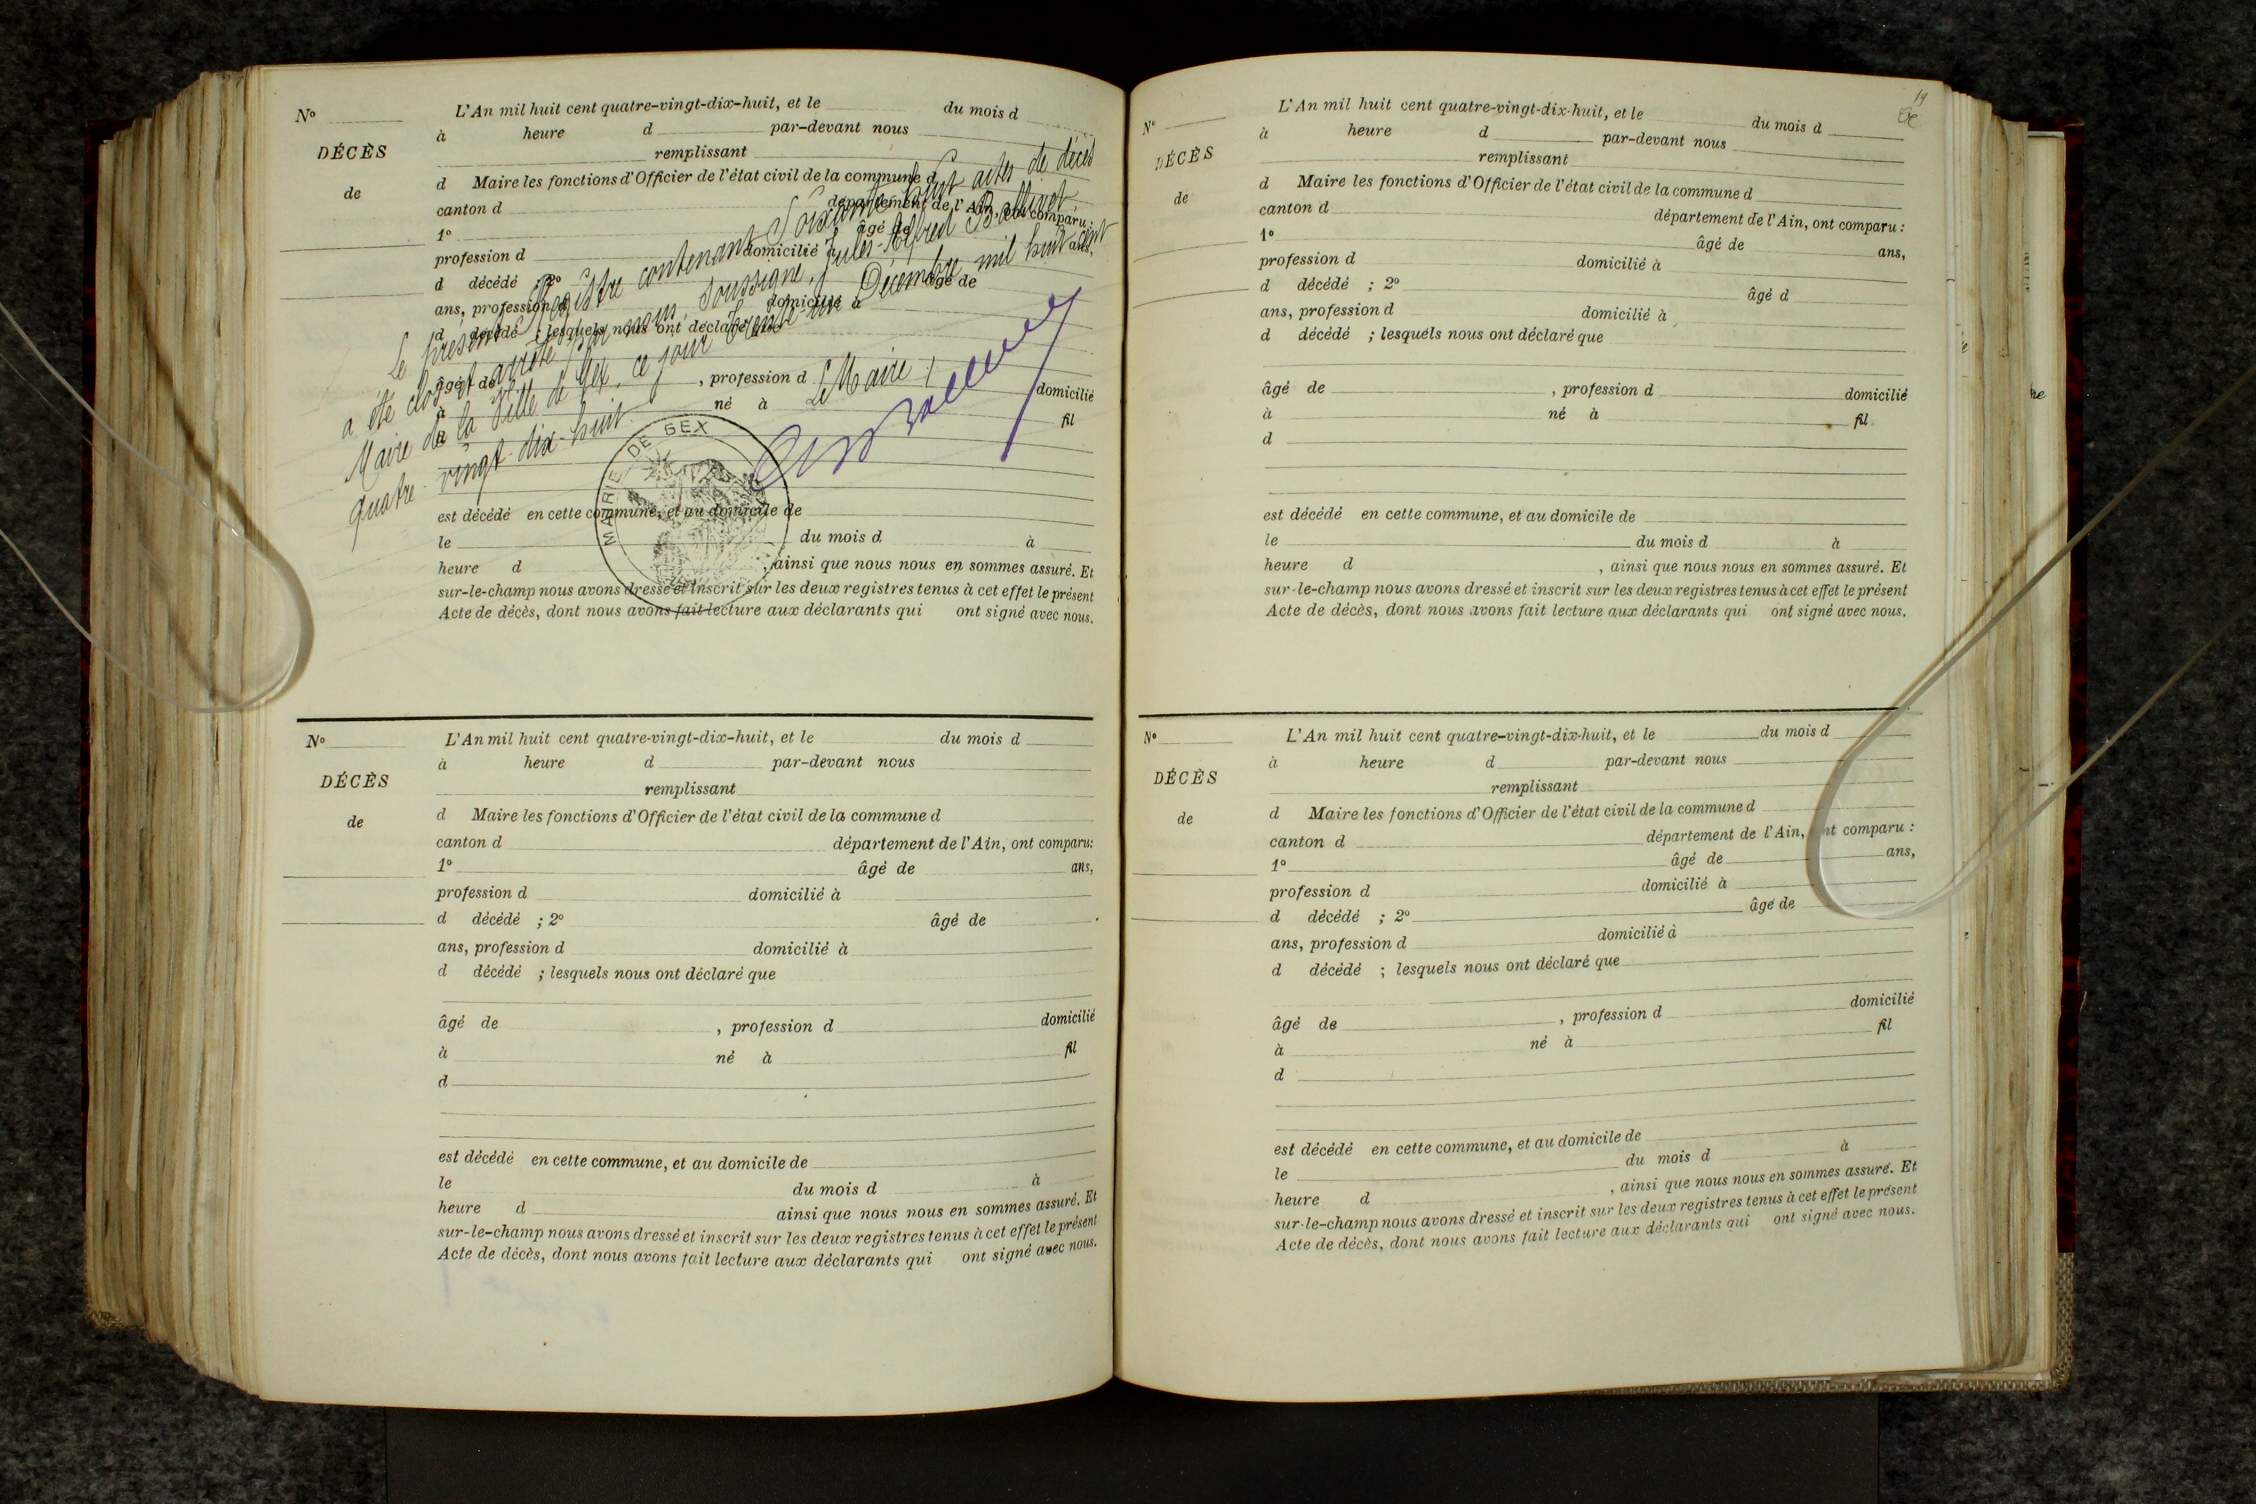 N°
DÉCÈS
de
L'An mil huit cent quatre-vingt-dix-huit, et le du mois d
à heure d par-devant nous
remplissant
d Maire les fonctions d'Officier de l'état civil de la commune d
canton d département de l'Ain, ont comparu:
1° âgé de ans,
profession d domicilié à
d décédé ; 2° âgé de
ans, profession d domicilié à
d décédé ; lesquels nous ont déclaré que
âgé de , profession d domicilié
à né à fil
d
est décédé en cette commune, et au domicile de
le du mois d à
heure d , ainsi que nous nous en sommes assuré. Et
sur-le-champ nous avons dressé et inscrit sur les deux registres tenus à cet effet le présent
Acte de décès, dont nous avons fait lecture aux déclarants qui ont signé avec nous.
Le présent Registre contenant Soixante huit actes de décès
a été clos et arrêté par nous, soussigné, Jules-Alfred Ballivet,
Maire de la Ville de Gex, ce jour trente-un Décembre mil huit cent
quatre-vingt-dix-huit
Le Maire,
MAIRIE DE GEX
N°
DÉCÈS
de
L'An mil huit cent quatre-vingt-dix-huit, et le du mois d
à heure d par-devant nous
remplissant
d Maire les fonctions d'Officier de l'état civil de la commune d
canton d département de l'Ain, ont comparu:
1° âgé de ans,
profession d domicilié à
d décédé ; 2° âgé de
ans, profession d domicilié à
d décédé ; lesquels nous ont déclaré que
âgé de , profession d domicilié
à né à fil
d
est décédé en cette commune, et au domicile de
le du mois d à
heure d ainsi que nous nous en sommes assuré. Et
sur-le-champ nous avons dressé et inscrit sur les deux registres tenus à cet effet le présent
Acte de décès, dont nous avons fait lecture aux déclarants qui ont signé avec nous.
19
N°
DÉCÈS
de
L'An mil huit cent quatre-vingt-dix-huit, et le du mois d
à heure d par-devant nous
remplissant
d Maire les fonctions d'Officier de l'état civil de la commune d
canton d département de l'Ain, ont comparu :
1° âgé de ans,
profession d domicilié à
d décédé ; 2° âgé d
ans, profession d domicilié à
d décédé ; lesquels nous ont déclaré que
âgé de , profession d domicilié
à né à fil
d
est décédé en cette commune, et au domicile de
le du mois d à
heure d , ainsi que nous nous en sommes assuré. Et
sur-le-champ nous avons dressé et inscrit sur les deux registres tenus à cet effet le présent
Acte de décès, dont nous avons fait lecture aux déclarants qui ont signé avec nous.
N°
DÉCÈS
de
L'An mil huit cent quatre-vingt-dix-huit, et le du mois d
à heure d par-devant nous
remplissant
d Maire les fonctions d'Officier de l'état civil de la commune d
canton d département de l'Ain, ont comparu :
1° âgé de ans,
profession d domicilié à
d décédé ; 2° âgé de
ans, profession d domicilié à
d décédé ; lesquels nous ont déclaré que
âgé de , profession d domicilié
à né à fil
d
est décédé en cette commune, et au domicile de
le du mois d à
heure d , ainsi que nous nous en sommes assuré. Et
sur-le-champ nous avons dressé et inscrit sur les deux registres tenus à cet effet le présent
Acte de décès, dont nous avons fait lecture aux déclarants qui ont signé avec nous.